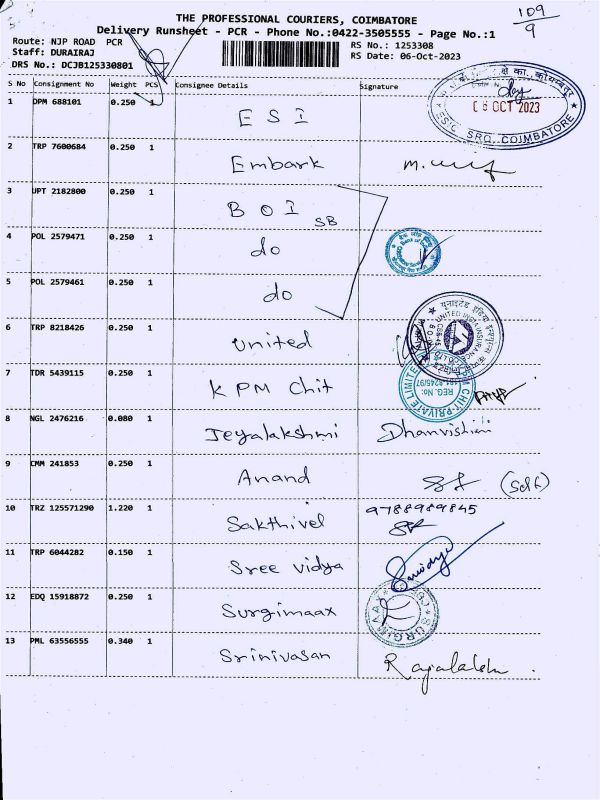 109
9
THE PROFESSIONAL COURIERS, COIMBATORE
Delivery Runsheet - PCR - Phone No.:0422-3505555 - Page No.:1
Route: NJP ROAD PCR
RS No.: 1253308
Staff: DURAIRAJ
RS Date: 06-Oct-2023
DRS No.: DCJB125330801
S No Consignment No Weight PCS Consignee Details Signature
06 OCT 2023
ESIC SRO, COIMBATORE
1 DPM 688101 0.250 1 ESI
2 TRP 7600684 0.250 1 Embark
3 UPT 2182800 0.250 1 BOI SB
4 POL 2579471 0.250 1 do
5 POL 2579461 0.250 1 do
6 TRP 8218426 0.250 1 United
UNITED INDIA INSURANCE
7 TDR 5439115 0.250 1 KPM Chit
CHIT PRIVATE LIMITED
REG. No:
8 NGL 2476216 0.080 1 Jeyalakshmi
9 CMM 241853 0.250 1 Anand (Self)
10 TRZ 125571290 1.220 1 Sakthivel 9788989845
11 TRP 6044282 0.150 1 Sree Vidya
12 EDQ 15918872 0.250 1 Surgimaax
13 PML 63556555 0.340 1 Srinivasan